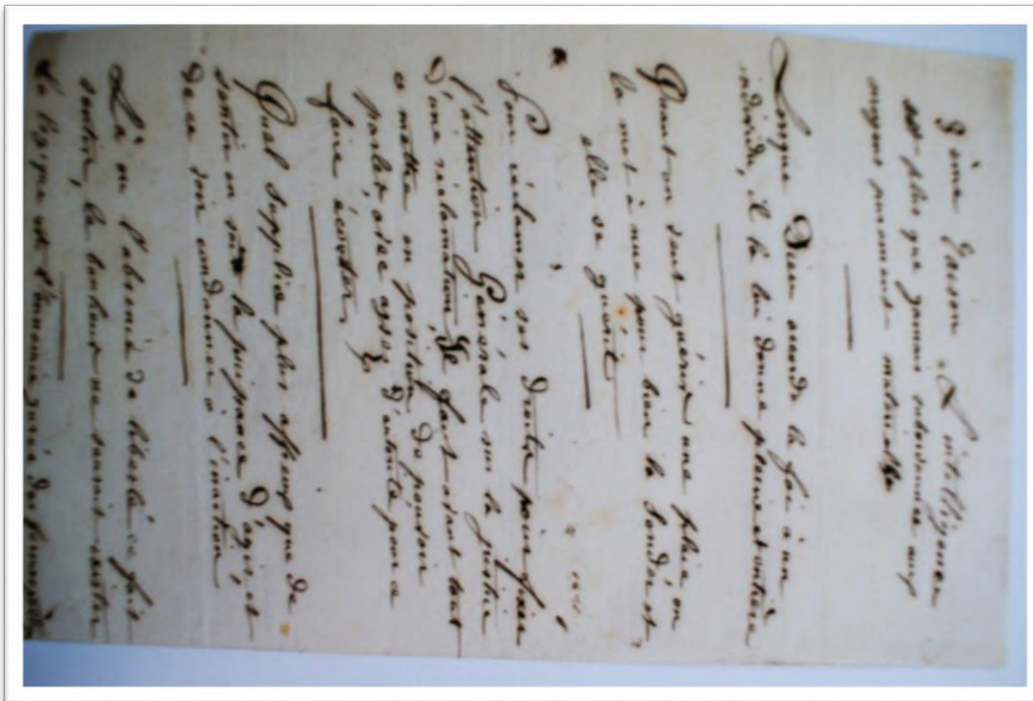 Raison et L'intelligence
plus que jamais subordonnée aux
organes purement matérielles
Lorsque Dieu accorde la foi à un
individu, il la lui donne pleine et entière
Quant on veut guérir une plaie on
la met à nue pour bien la sonder et
elle se guérit
Pour réclamer ses Droits, pour fixer
l'attention Générale sur la justice
D'une réclamation, Il faut avant tout
ce mettre en position de pouvoir
parler avec assez D'autorité pour ce
faire écouter
Quel supplice plus affreux que de
sentir en soi la puissance D'agir, et
de ce voir condamner à l'inaction
Là où l'absence de liberté ce fait
sentir, le bonheur ne saurait exister
La logique est l'ennemie jurée des